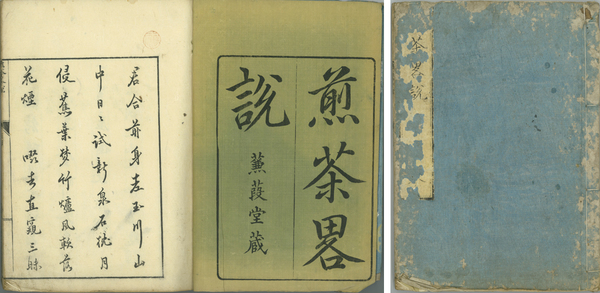 茶畧説
煎茶畧
說
蒹葭堂蔵
君合前身老玉川山
中日〻試新泉石枕月
侵蕉葉夢竹爐風軟落
花煙 直窺三昧